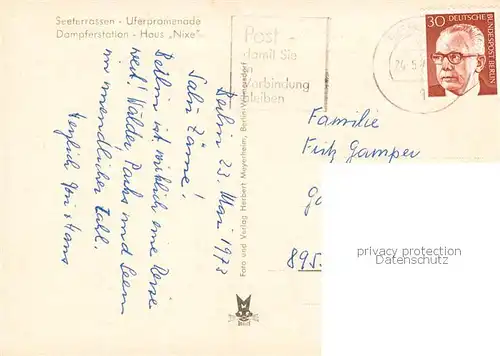 Seeterrassen - Uferpromenade
Dampferstation - Haus „Nixe"
Berlin 23. Mai 1973
Salü Zäme!
Berlin ist wirklich eine Reise
wert! Wälder, Parks und Seen
in unendlicher Zahl.
Herzlich
Hans
Foto und Verlag Herbert Meyerheim, Berlin-Wilmersdorf
Post -
damit Sie
Verbindung
bleiben
30 DEUTSCHE
BUNDESPOST BERLIN
Familie
Fritz Gamper
895
privacy protection
Datenschutz